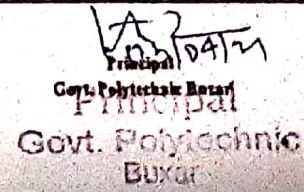 04/21
Principal
Govt. Polytechnic Buxar
Principal
Govt. Polytechnic
Buxar